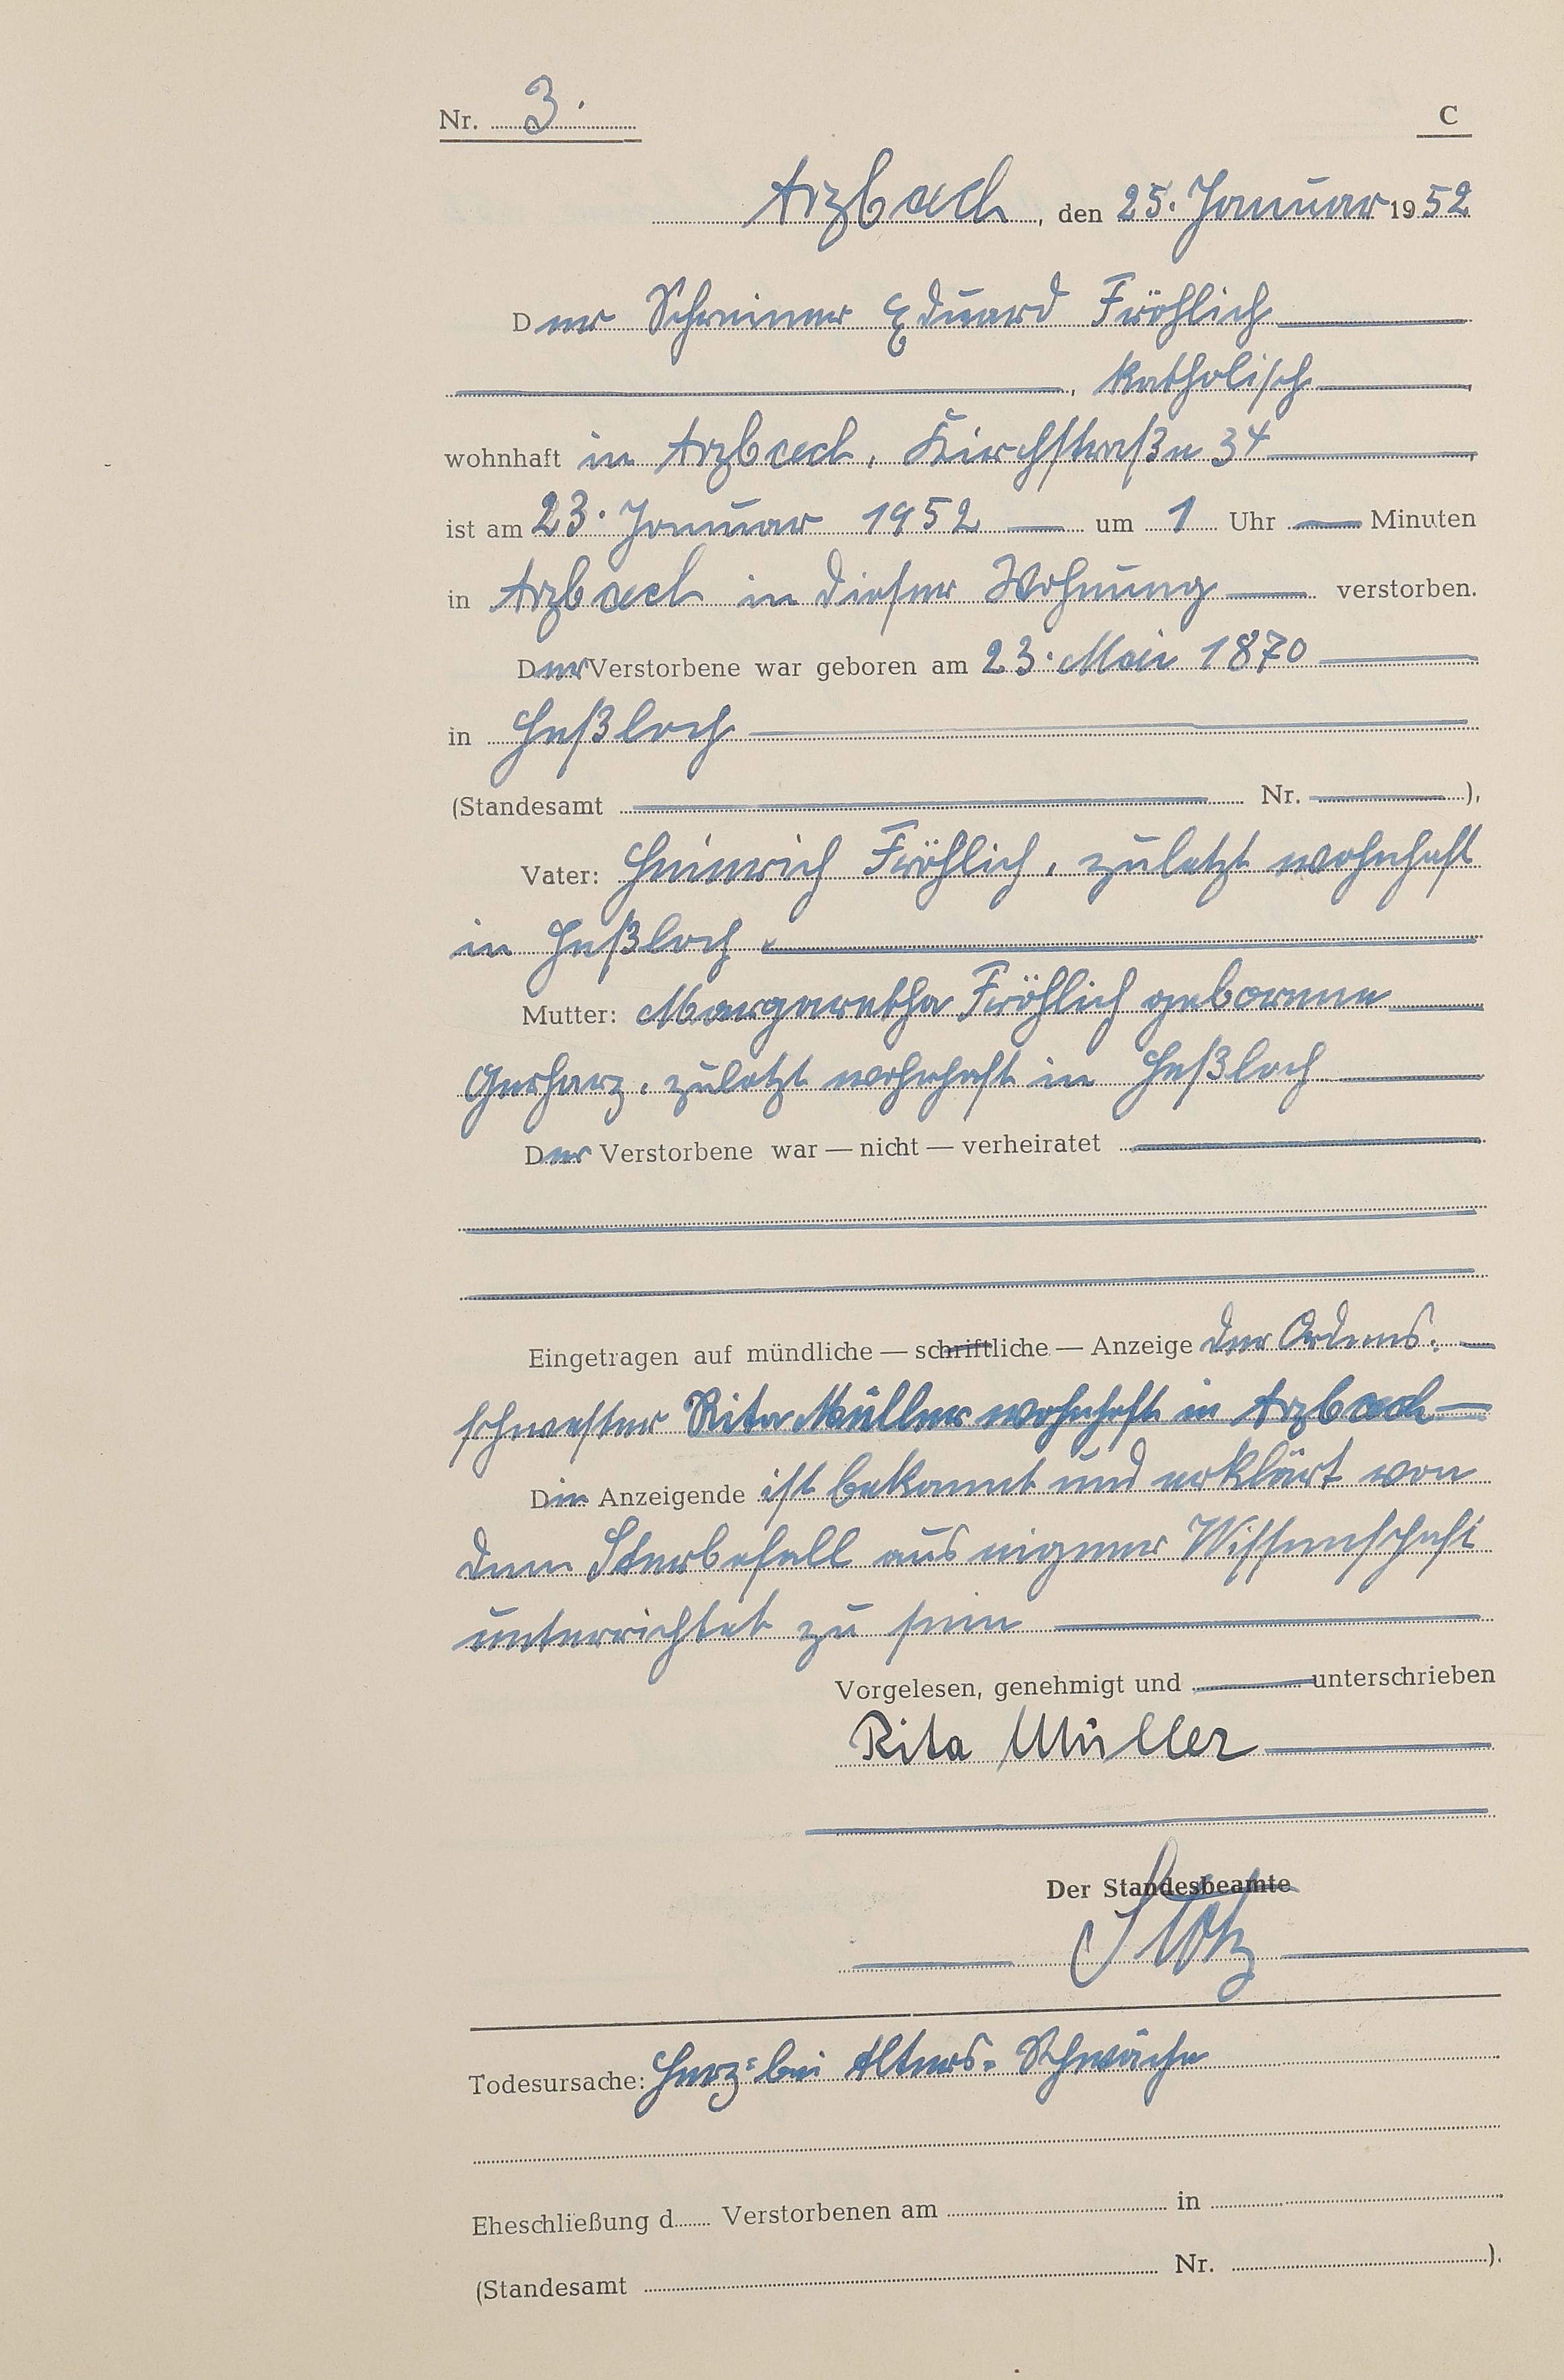 Nr. 3. C
Arzbach, den 25. Januar 1952
Der Schreiner Eduard Fröhlich
, katholisch
wohnhaft in Arzbach, Kirchstraße 34
ist am 23. Januar 1952 um 1 Uhr Minuten
in Arzbach in dieser Wohnung verstorben.
Der Verstorbene war geboren am 23. Mai 1870
in Heßloch
(Standesamt Nr. ),
Vater: Heinrich Fröhlich, zuletzt wohnhaft
in Heßloch
Mutter: Margaretha Fröhlich geborene
Gerharz, zuletzt wohnhaft in Heßloch
Der Verstorbene war — nicht — verheiratet
Eingetragen auf mündliche — schriftliche — Anzeige der Ordens-
schwester Rita Müller wohnhaft in Arzbach
Die Anzeigende ist bekannt und erklärt von
dem Sterbefall aus eigener Wissenschaft
unterrichtet zu sein
Vorgelesen, genehmigt und unterschrieben
Rita Müller
Der Standesbeamte
Todesursache: Herz- bei Alters-Schwäche
Eheschließung d Verstorbenen am in
(Standesamt Nr. ).